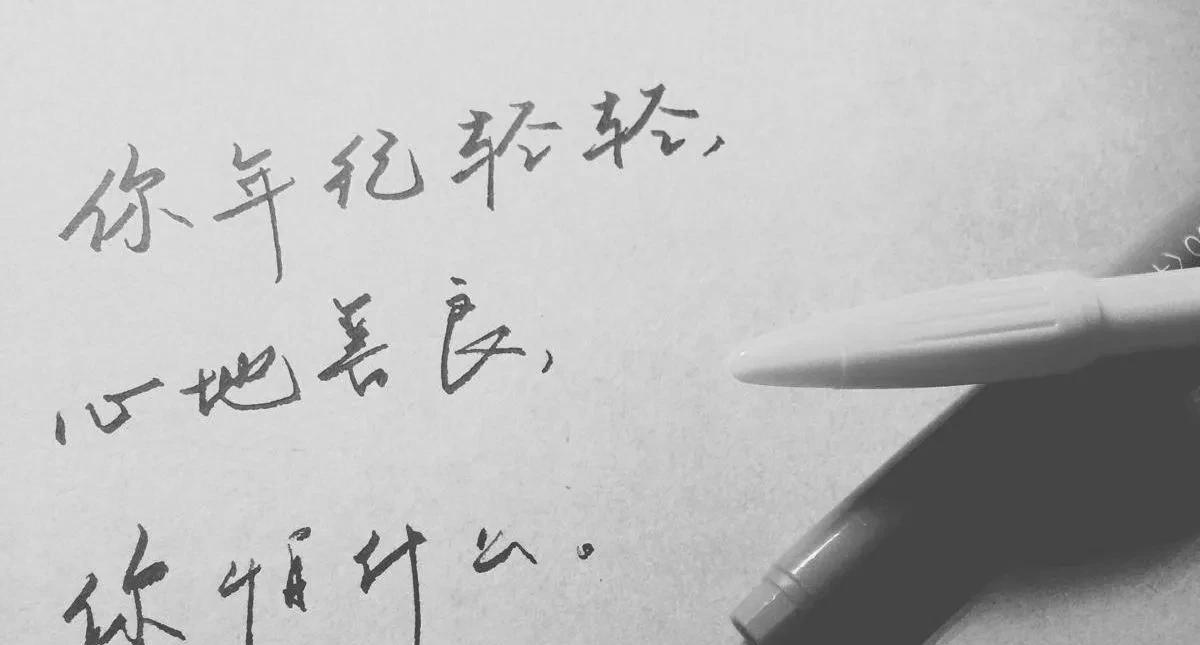 你年纪轻轻,
心地善良,
你怕什么。